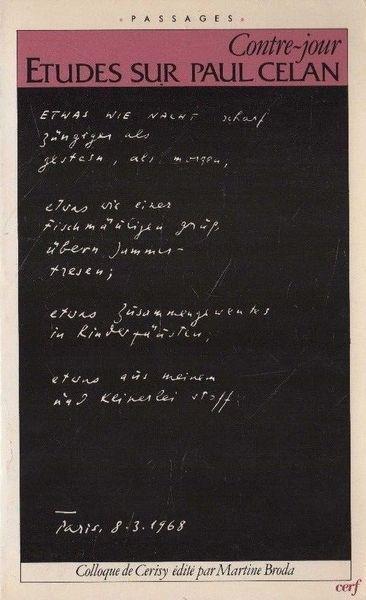 • PASSAGES •
Contre-jour
ETUDES SUR PAUL CELAN
ETWAS WIE NACHT scharf
züngiger als
gestern, als morgen,
etwas wie einer
Fischmäuligen Gruß
übern Jammer-
tresen;
etwas Zusammengewehtes
in Kinderfäusten,
etwas aus meinem
und keinerlei Stoff.
Paris, 8.3.1968
Colloque de Cerisy édité par Martine Broda
cerf